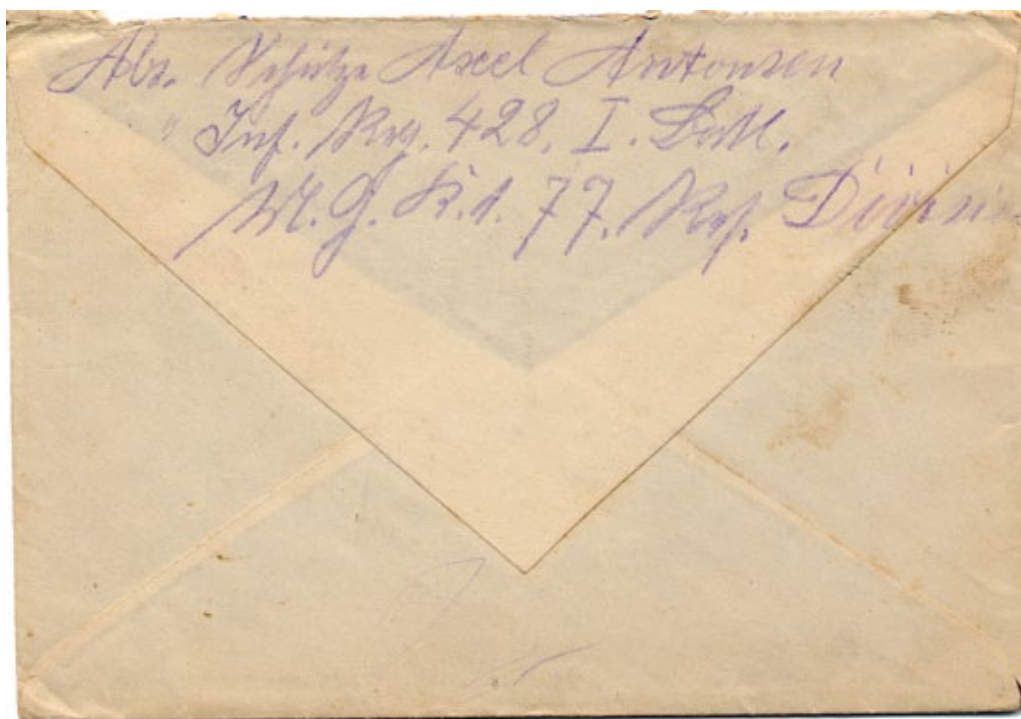 Abs. Schütze Axel Antonsen
" Inf. Reg. 428. I. Batl.
M.G.K. d. 77. Res. Division